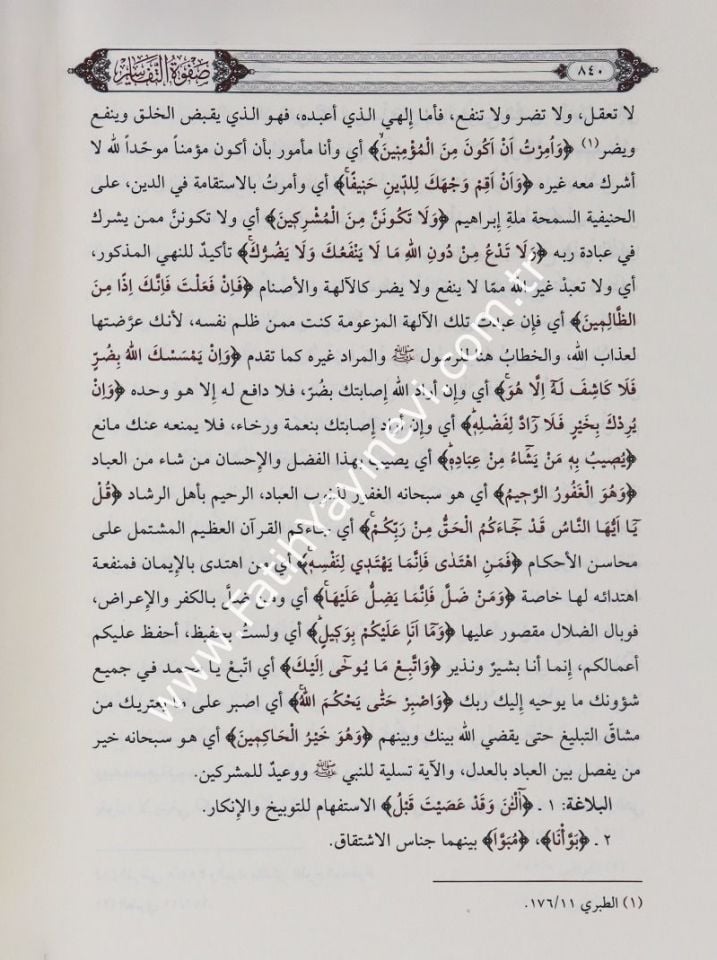 صفوة التفاسير
٨٤٠
لا تعقل، ولا تضر ولا تنفع، فأما إلهي الذي أعبده، فهو الذي يقبض الخلق وينفع
ويضر(١) ﴿وَاُمِرْتُ اَنْ اَكُونَ مِنَ الْمُؤْمِنِينَۙ﴾ أي وأنا مأمور بأن أكون مؤمناً موحّداً لله لا
أشرك معه غيره ﴿وَاَنْ اَقِمْ وَجْهَكَ لِلدِّينِ حَنِيفًاۚ﴾ أي وأمرتُ بالاستقامة في الدين، على
الحنيفية السمحة ملةِ إبراهيم ﴿وَلَا تَكُونَنَّ مِنَ الْمُشْرِكِينَ﴾ أي ولا تكوننَّ ممن يشرك
في عبادة ربه ﴿وَلَا تَدْعُ مِنْ دُونِ اللّٰهِ مَا لَا يَنْفَعُكَ وَلَا يَضُرُّكَۚ﴾ تأكيدٌ للنهي المذكور،
أي ولا تعبدْ غير الله ممّا لا ينفع ولا يضر كالآلهة والأصنام ﴿فَاِنْ فَعَلْتَ فَاِنَّكَ اِذًا مِنَ
الظَّالِمِينَ﴾ أي فإن عبدت تلك الآلهة المزعومة كنت ممن ظلم نفسه، لأنك عرَّضتها
لعذاب الله، والخطابُ هنا للرسول ﷺ والمراد غيره كما تقدم ﴿وَاِنْ يَمْسَسْكَ اللّٰهُ بِضُرٍّ
فَلَا كَاشِفَ لَهُٓ اِلَّا هُوَۚ﴾ أي وإن أراد الله إصابتك بضُر، فلا دافع له إلا هو وحده ﴿وَاِنْ
يُرِدْكَ بِخَيْرٍ فَلَا رَادَّ لِفَضْلِهِۜ﴾ أي وإن أراد إصابتك بنعمة ورخاء، فلا يمنعه عنك مانع
﴿يُصِيبُ بِهِ مَنْ يَشَٓاءُ مِنْ عِبَادِهِۜ﴾ أي يصيب بهذا الفضل والإحسان من شاء من العباد
﴿وَهُوَ الْغَفُورُ الرَّحِيمُ﴾ أي هو سبحانه الغفور لذنوب العباد، الرحيم بأهل الرشاد ﴿قُلْ
يَٓا اَيُّهَا النَّاسُ قَدْ جَٓاءَكُمُ الْحَقُّ مِنْ رَبِّكُمْۚ﴾ أي جاءكم القرآن العظيم المشتمل على
محاسن الأحكام ﴿فَمَنِ اهْتَدٰى فَاِنَّمَا يَهْتَدِي لِنَفْسِهِۚ﴾ أي من اهتدى بالإيمان فمنفعة
اهتدائه لها خاصة ﴿وَمَنْ ضَلَّ فَاِنَّمَا يَضِلُّ عَلَيْهَاۚ﴾ أي ومن ضلَّ بالكفر والإعراض،
فوبال الضلال مقصور عليها ﴿وَمَٓا اَنَا عَلَيْكُمْ بِوَكِيلٍۜ﴾ أي ولست بحفيظ، أحفظ عليكم
أعمالكم، إنما أنا بشيرٌ ونذير ﴿وَاتَّبِعْ مَا يُوحٰٓى اِلَيْكَ﴾ أي اتّبعْ يا محمد في جميع
شؤونك ما يوحيه إليك ربك ﴿وَاصْبِرْ حَتّٰى يَحْكُمَ اللّٰهُۚ﴾ أي اصبر على ما يعتريك من
مشاقّ التبليغ حتى يقضي الله بينك وبينهم ﴿وَهُوَ خَيْرُ الْحَاكِمِينَ﴾ أي هو سبحانه خير
من يفصل بين العباد بالعدل، والآية تسلية للنبي ﷺ ووعيدٌ للمشركين.
البلاغة: ١ ـ ﴿آٰلْـٰٔنَ وَقَدْ عَصَيْتَ قَبْلُ﴾ الاستفهام للتوبيخ والإنكار.
٢ ـ ﴿بَوَّأْنَا﴾، ﴿مُبَوَّاَ﴾ بينهما جناس الاشتقاق.
(١) الطبري ١٧٦/١١.
www.FatihYayinevi.com.tr